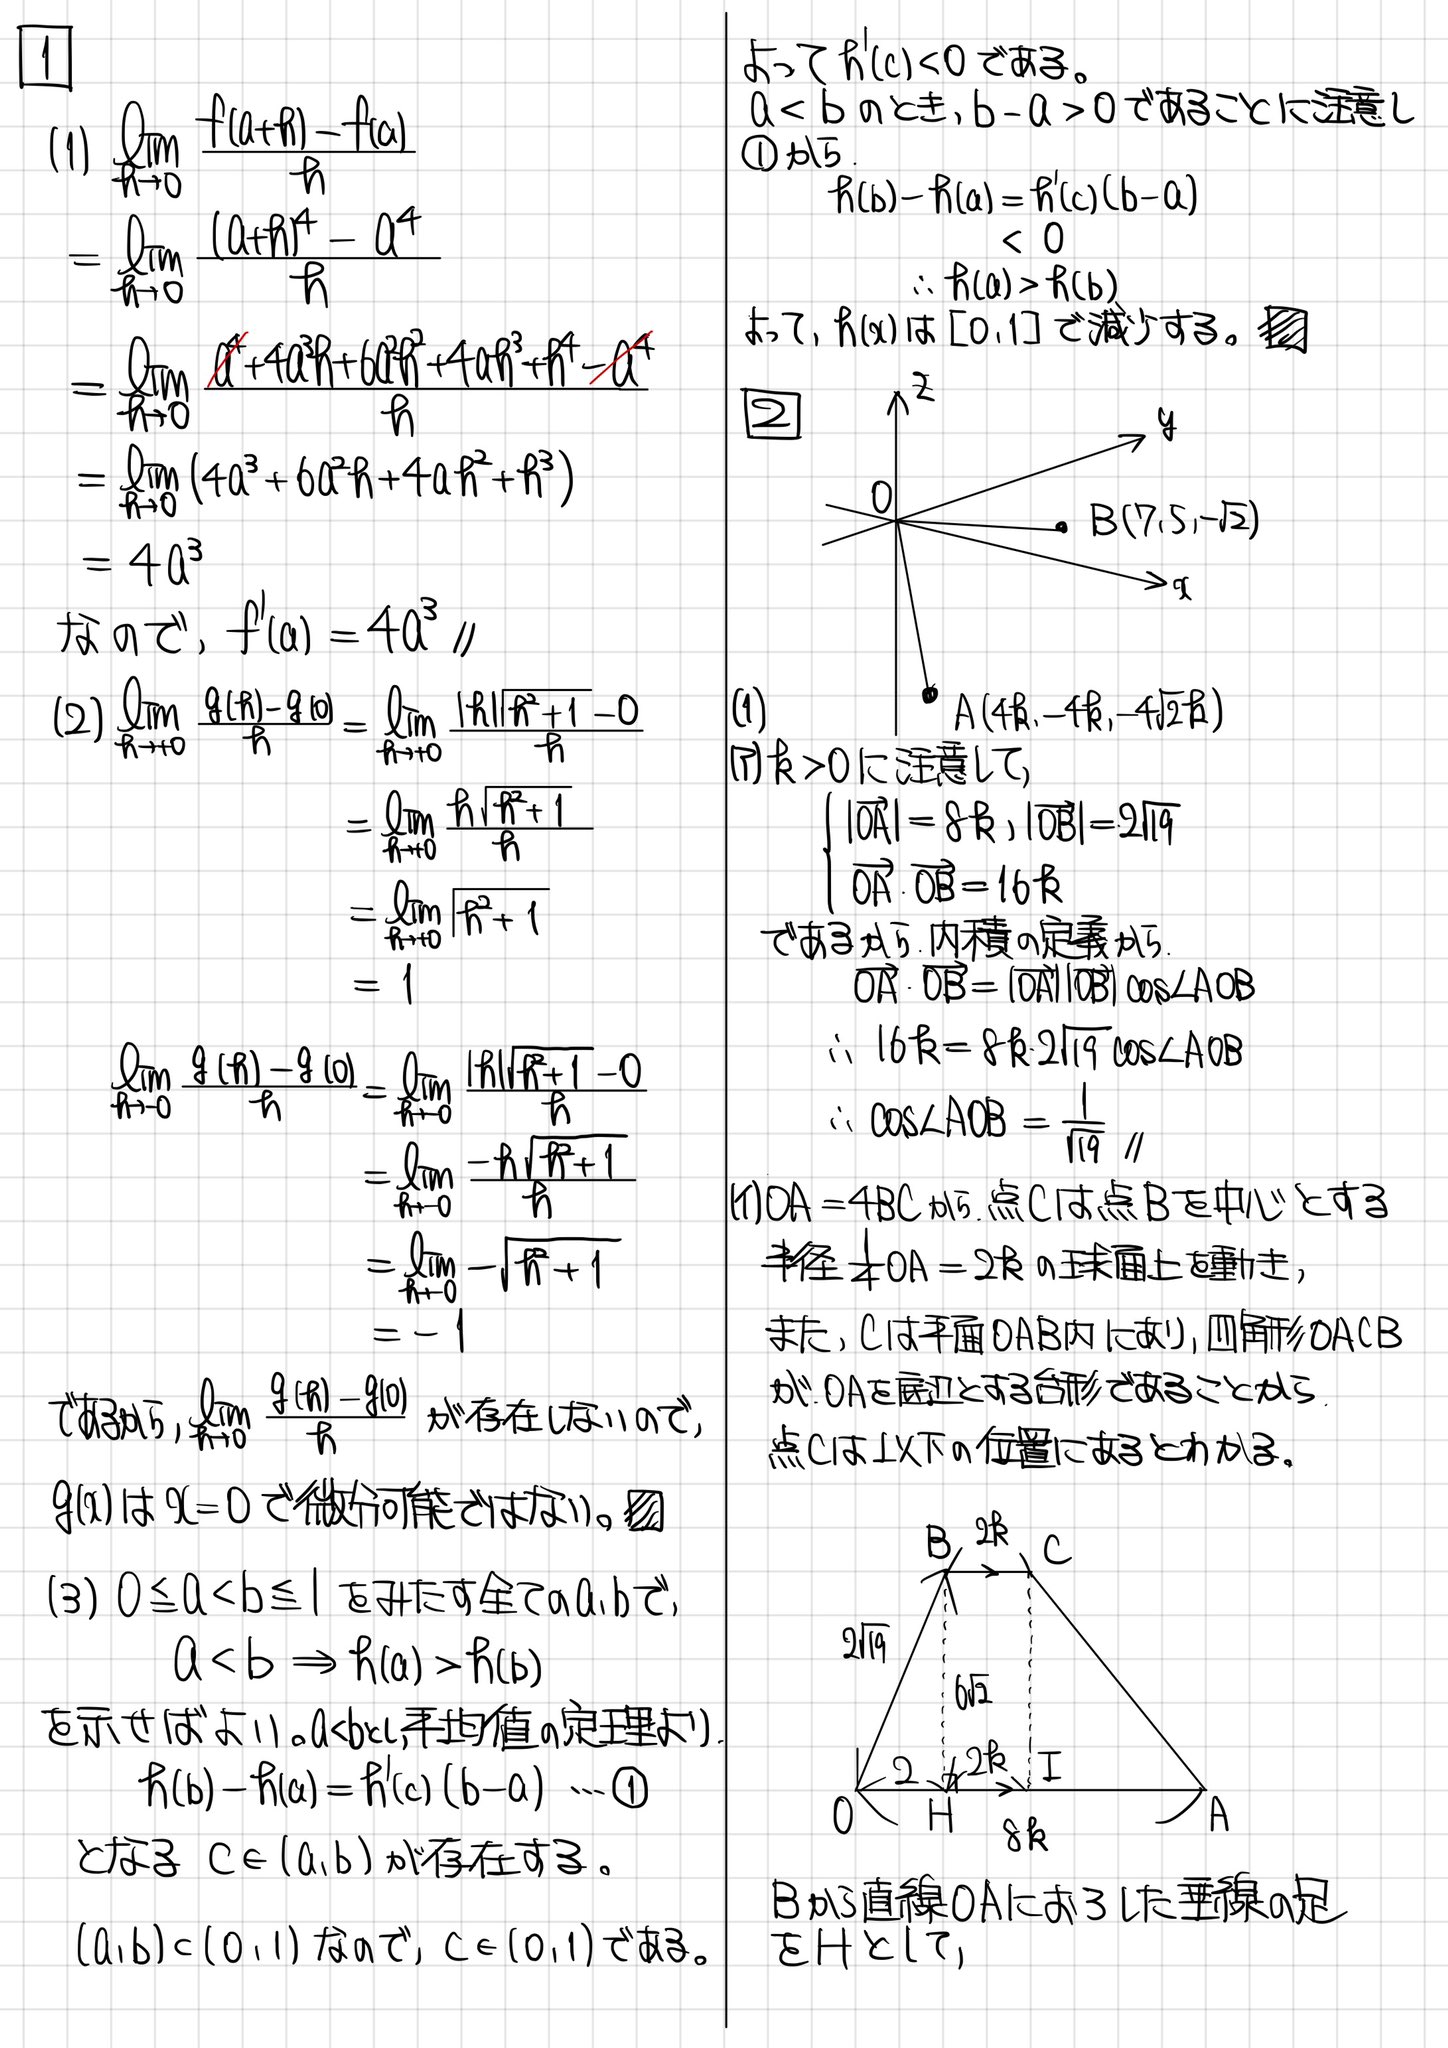 1
(1) lim_{h→0} (f(a+h)-f(a))/h
= lim_{h→0} ((a+h)^4 - a^4)/h
= lim_{h→0} (a^4+4a^3h+6a^2h^2+4ah^3+h^4-a^4)/h
= lim_{h→0} (4a^3+6a^2h+4ah^2+h^3)
= 4a^3
なので, f'(a) = 4a^3 //
(2) lim_{h→+0} (g(h)-g(0))/h = lim_{h→+0} (|h|√(h^2+1) -0)/h
= lim_{h→+0} (h√(h^2+1))/h
= lim_{h→+0} √(h^2+1)
= 1
lim_{h→-0} (g(h)-g(0))/h = lim_{h→-0} (|h|√(h^2+1) -0)/h
= lim_{h→-0} (-h√(h^2+1))/h
= lim_{h→-0} -√(h^2+1)
= -1
であるから, lim_{h→0} (g(h)-g(0))/h が存在しないので,
g(x)は x=0 で微分可能ではない。
(3) 0≦a<b≦1 をみたす全てのa,bで,
a<b ⇒ h(a)>h(b)
を示せばよい。a<bとし,平均値の定理より,
h(b)-h(a)=h'(c)(b-a) …①
となる c∈(a,b) が存在する。
(a,b)⊂(0,1) なので, c∈(0,1)である。
よって h'(c)<0 である。
a<b のとき, b-a>0であることに注意し
①から,
h(b)-h(a)=h'(c)(b-a)
< 0
∴ h(a)>h(b)
よって, h(x)は [0,1] で減少する。
2
z
y
O
B(7,5,-√2)
x
A(4k,-4k,-4√2k)
(1)
(ア) k>0 に注意して,
|OA→|=8k, |OB→|=2√19
OA→・OB→=16k
であるから,内積の定義から,
OA→・OB→=|OA→||OB→|cos∠AOB
∴ 16k=8k・2√19 cos∠AOB
∴ cos∠AOB = 1/√19 //
(イ) OA=4BC から,点Cは点Bを中心とする
半径 1/4 OA=2k の球面上を動き,
また, Cは平面OAB内にあり,四角形OACB
が,OAを底辺とする台形であることから,
点Cは以下の位置にあるとわかる。
B 2k C
2√19
6√2
2 2k I
O H 8k A
Bから直線OAにおろした垂線の足
をHとして,